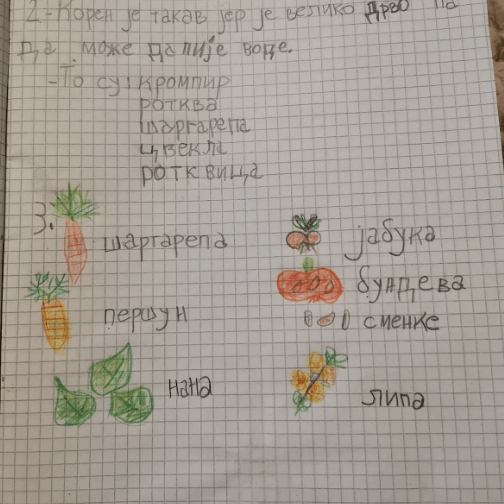 2.-Корен је такав јер је велико дрво па
да може да пије воде.
-То су: кромпир
ротква
шаргарепа
цвекла
ротквица
3.
шаргарепа
јабука
бундева
першун
сменке
нана
липа